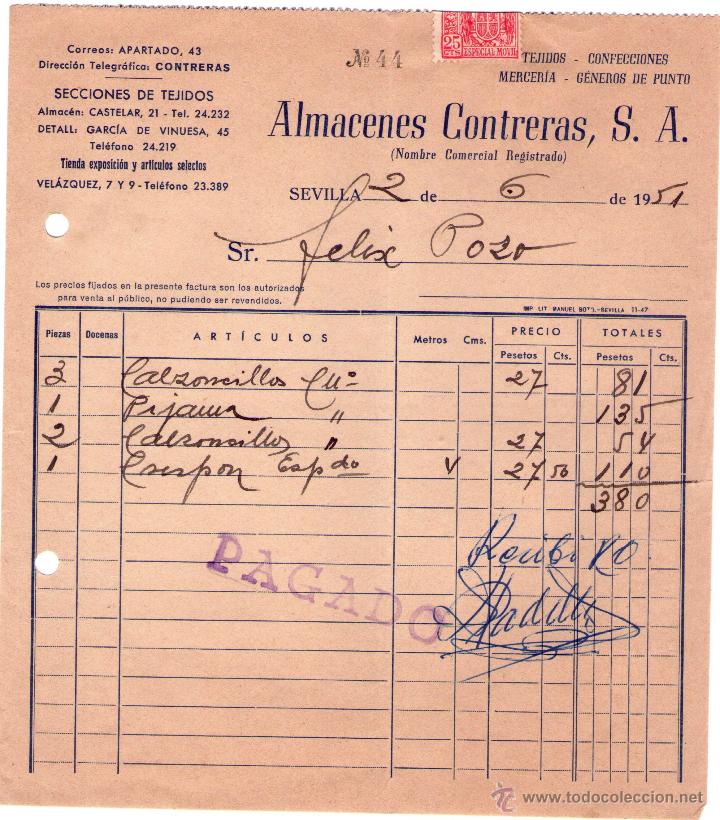 Correos: APARTADO, 43
Dirección Telegráfica: CONTRERAS
SECCIONES DE TEJIDOS
Almacén: CASTELAR, 21 - Tel. 24.232
DETALL: GARCÍA DE VINUESA, 45
Teléfono 24.219
Tienda exposición y artículos selectos
VELÁZQUEZ, 7 Y 9 - Teléfono 23.389
Nº 44
25
CTS
ESPECIAL MOVIL
TEJIDOS - CONFECCIONES
MERCERÍA - GÉNEROS DE PUNTO
Almacenes Contreras, S. A.
(Nombre Comercial Registrado)
SEVILLA 2 de 6 de 1951
Sr. Felix Pozo
Los precios fijados en la presente factura son los autorizados
para venta al público, no pudiendo ser revendidos.
IMP. LIT. MANUEL SOTO.-SEVILLA 11-47
Piezas Docenas ARTÍCULOS Metros Cms. PRECIO TOTALES
Pesetas Cts. Pesetas Cts.
3 Calzoncillos Cnº 27 81
1 Pijama " 135
2 Calzoncillos " 27 54
1 Crespon Espdo 4 27 50 110
380
PAGADO
Recibi
www.todocoleccion.net